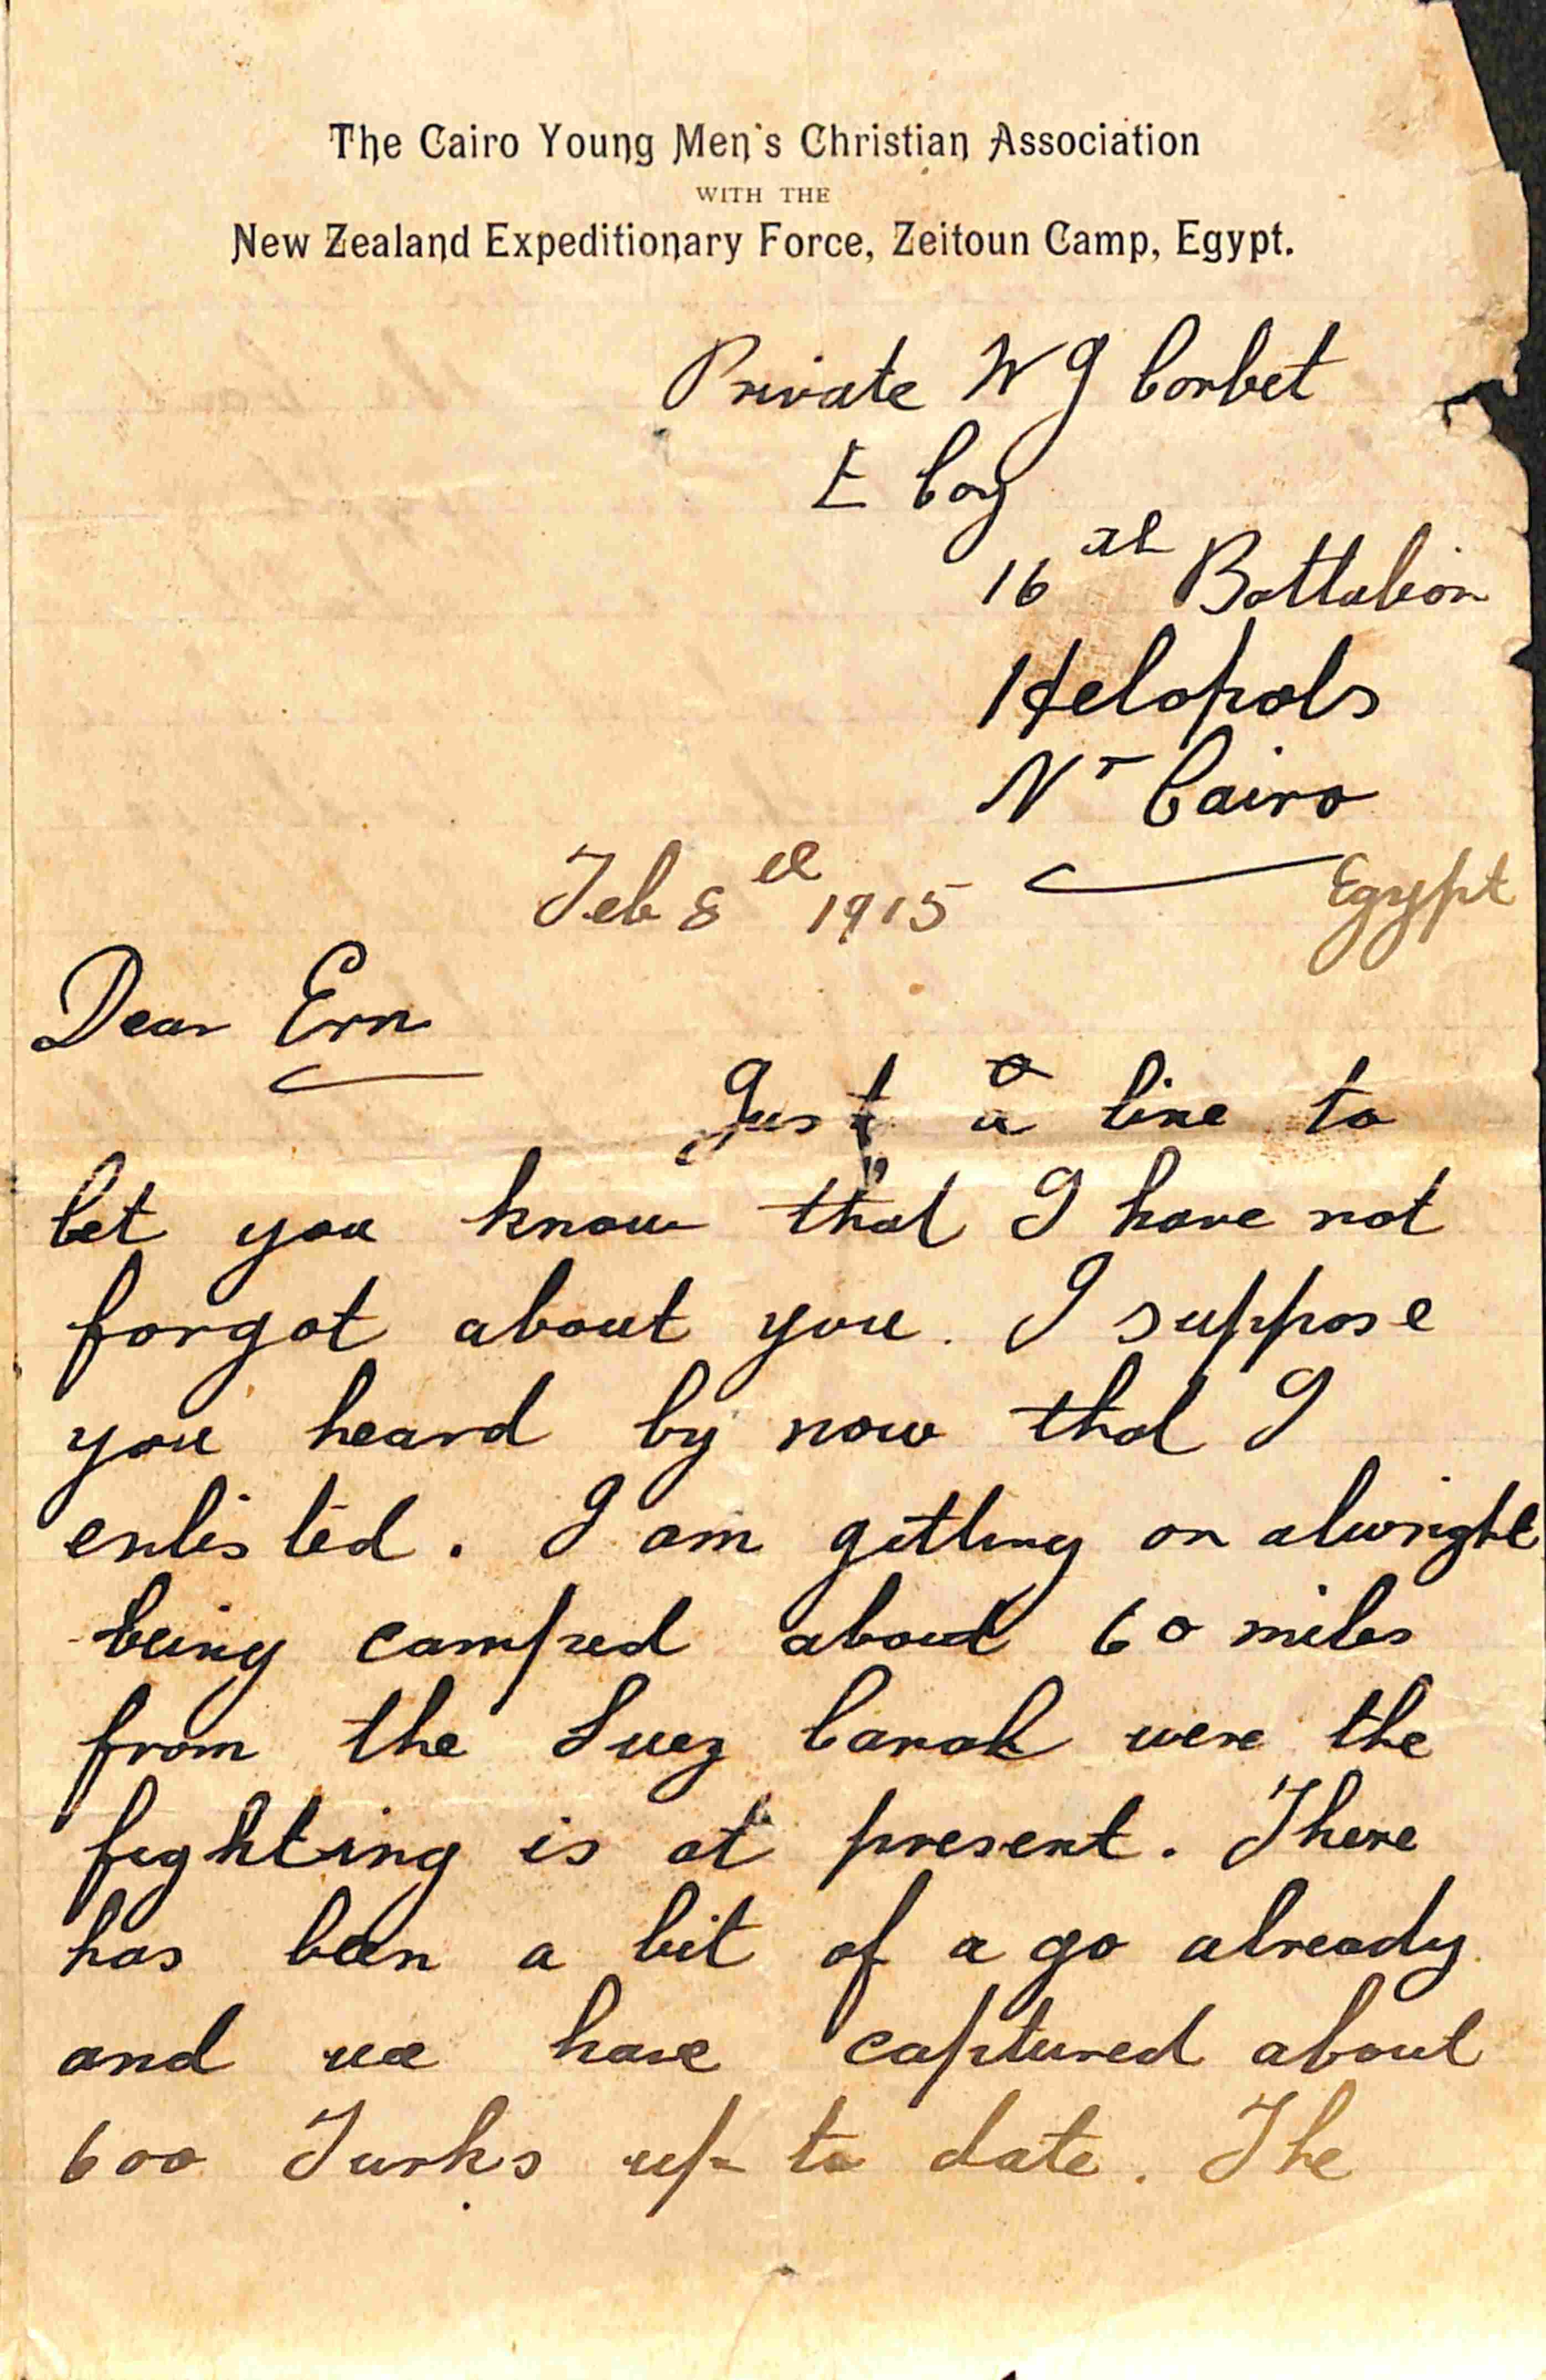 The Cairo Young Men's Christian Association
WITH THE
New Zealand Expeditionary Force, Zeitoun Camp, Egypt.
Private W G Corbet
E Coy
16th Battalion
Helopols
Nr Cairo
Egypt
Feb 8th 1915
Dear Ern
Just a line to
let you know that I have not
forgot about you. I suppose
you heard by now that I
enlisted. I am getting on alwright
being camped about 60 miles
from the Suez Canal were the
fighting is at present. There
has been a bit of a go already
and we have captured about
600 Turks up to date. The